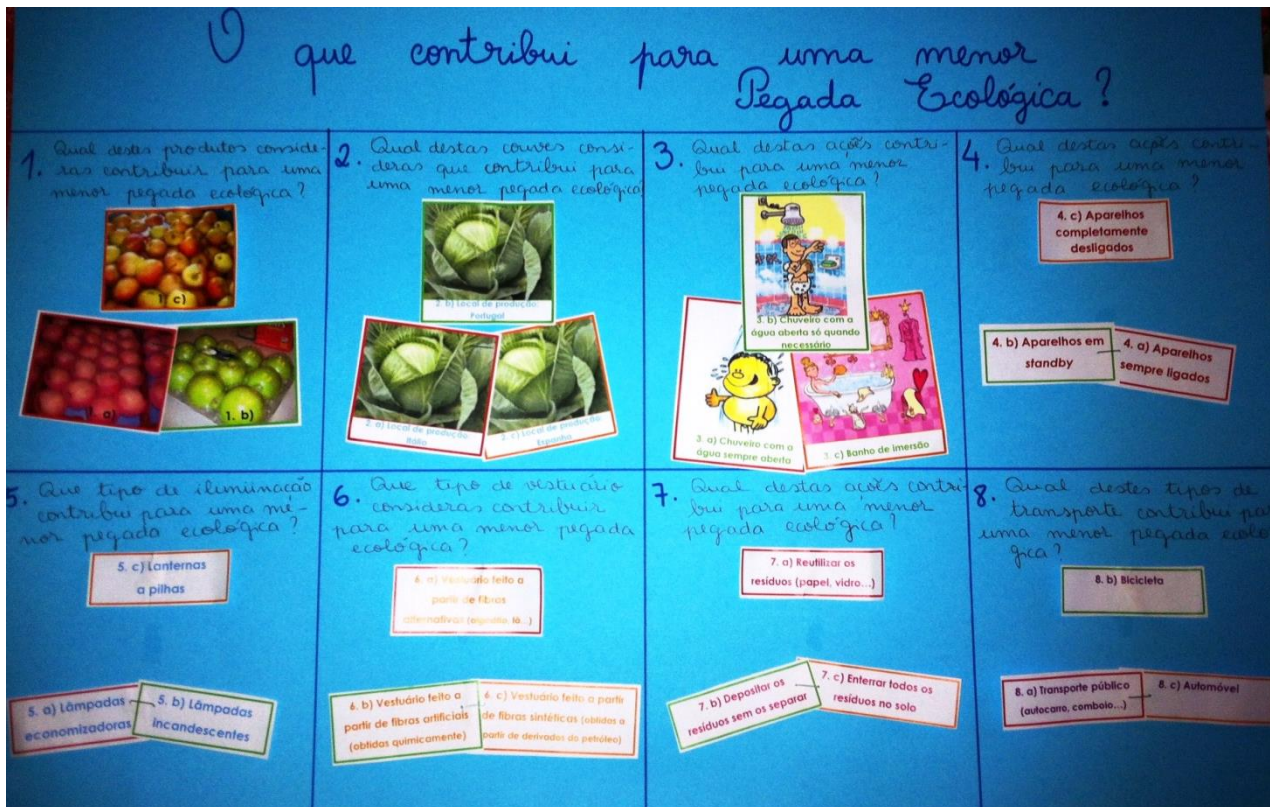 O que contribui para uma menor
Pegada Ecológica?
1. Qual destes produtos conside-
ras contribuir para uma
menor pegada ecológica?
1. c)
1. a)
1. b)
2. Qual destas couves consi-
deras que contribui para
uma menor pegada ecológica
2. b) Local de produção:
Portugal
2. a) Local de produção:
Itália
2. c) Local de produção:
Espanha
3. Qual destas ações contri-
bui para uma menor
pegada ecológica?
3. b) Chuveiro com a
água aberta só quando
necessário
3. a) Chuveiro com a
água sempre aberta
3. c) Banho de imersão
4. Qual destas ações contri-
bui para uma menor
pegada ecológica?
4. c) Aparelhos
completamente
desligados
4. b) Aparelhos em
standby
4. a) Aparelhos
sempre ligados
5. Que tipo de iluminação
contribui para uma me-
nor pegada ecológica?
5. c) Lanternas
a pilhas
5. a) Lâmpadas
economizadoras
5. b) Lâmpadas
incandescentes
6. Que tipo de vestuário
consideras contribuir
para uma menor pegada
ecológica?
6. a) Vestuário feito a
partir de fibras
alternativas (algodão, lã...)
6. b) Vestuário feito a
partir de fibras artificiais
(obtidas quimicamente)
6. c) Vestuário feito a partir
de fibras sintéticas (obtidas a
partir de derivados do petróleo)
7. Qual destas ações contri-
bui para uma menor
pegada ecológica?
7. a) Reutilizar os
resíduos (papel, vidro...)
7. b) Depositar os
resíduos sem os separar
7. c) Enterrar todos os
resíduos no solo
8. Qual destes tipos de
transporte contribui pa
uma menor pegada ecoló
gica?
8. b) Bicicleta
8. a) Transporte público
(autocarro, comboio...)
8. c) Automóvel